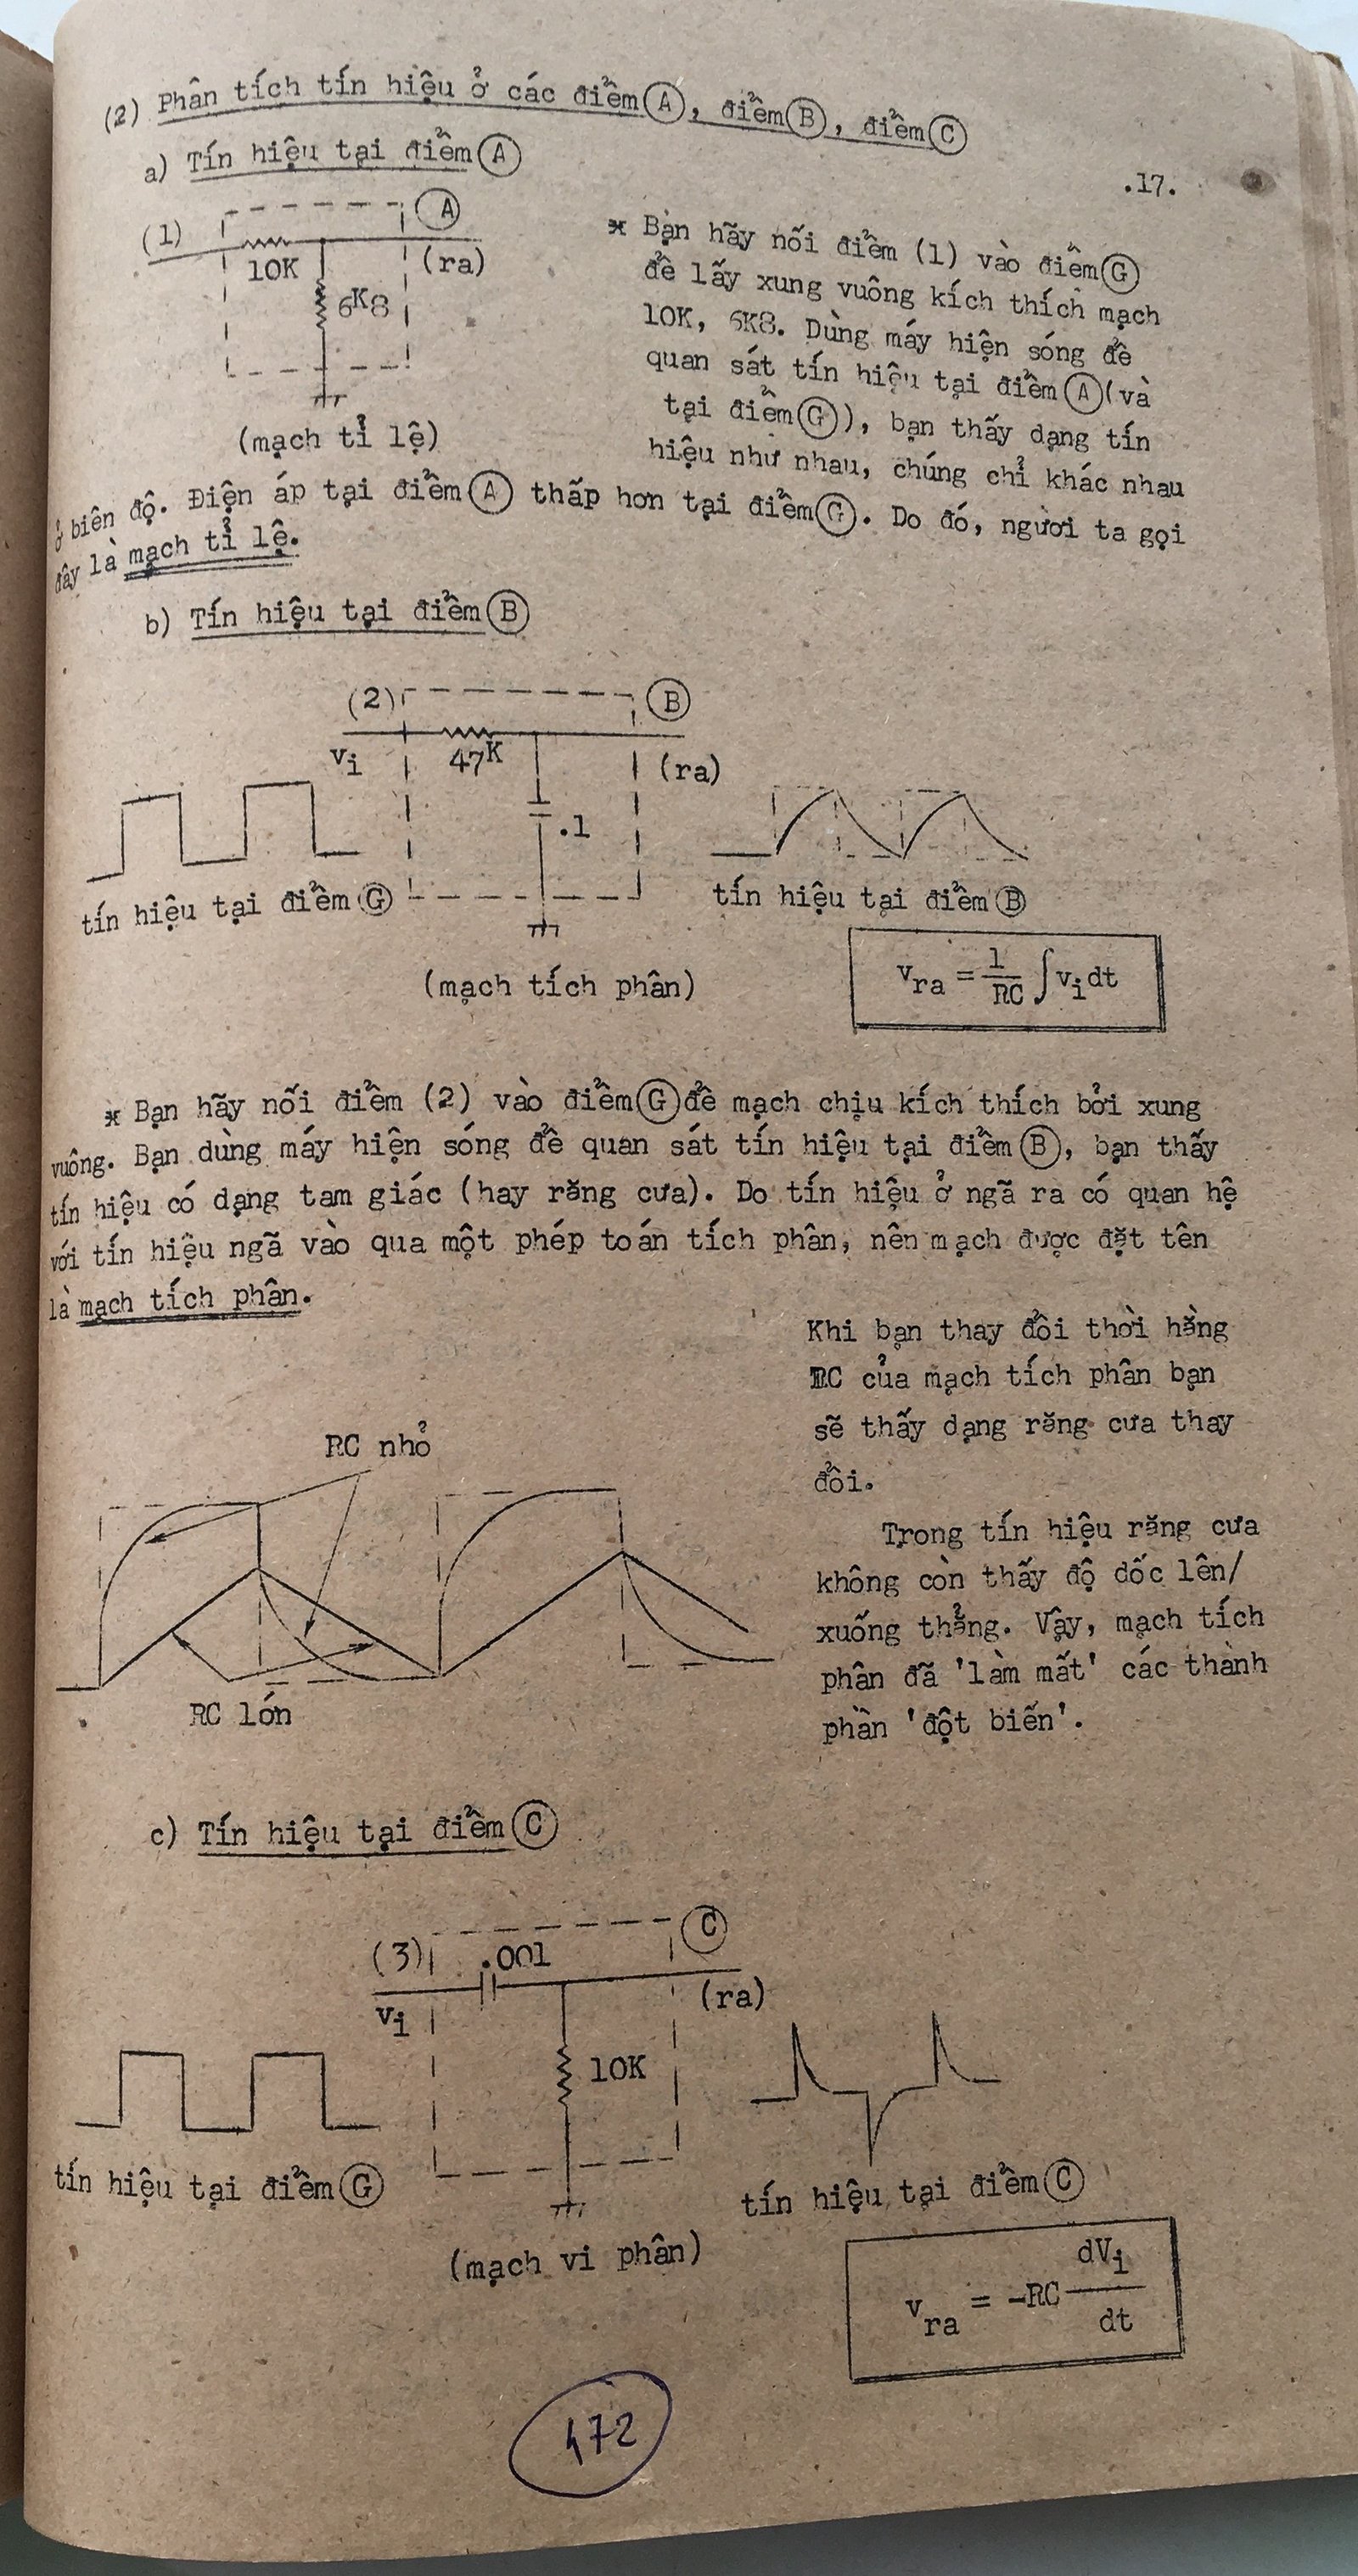 (2) Phân tích tín hiệu ở các điểm Ⓐ, điểm Ⓑ, điểm Ⓒ
a) Tín hiệu tại điểm Ⓐ
.17.
(1)
Ⓐ
10K
(ra)
6K8
(mạch tỉ lệ)
* Bạn hãy nối điểm (1) vào điểm Ⓖ
để lấy xung vuông kích thích mạch
10K, 6K8. Dùng máy hiện sóng để
quan sát tín hiệu tại điểm Ⓐ (và
tại điểm Ⓖ), bạn thấy dạng tín
hiệu như nhau, chúng chỉ khác nhau
ở biên độ. Điện áp tại điểm Ⓐ thấp hơn tại điểm Ⓖ. Do đó, người ta gọi
đây là mạch tỉ lệ.
b) Tín hiệu tại điểm Ⓑ
(2)
Ⓑ
vi
47K
(ra)
.1
tín hiệu tại điểm Ⓖ
tín hiệu tại điểm Ⓑ
(mạch tích phân)
vra = 1/RC ∫vidt
* Bạn hãy nối điểm (2) vào điểm Ⓖ để mạch chịu kích thích bởi xung
vuông. Bạn dùng máy hiện sóng để quan sát tín hiệu tại điểm Ⓑ, bạn thấy
tín hiệu có dạng tam giác (hay răng cưa). Do tín hiệu ở ngã ra có quan hệ
với tín hiệu ngã vào qua một phép toán tích phân, nên mạch được đặt tên
là mạch tích phân.
Khi bạn thay đổi thời hằng
RC của mạch tích phân bạn
sẽ thấy dạng răng cưa thay
đổi.
RC nhỏ
RC lớn
Trong tín hiệu răng cưa
không còn thấy độ dốc lên/
xuống thẳng. Vậy, mạch tích
phân đã 'làm mất' các thành
phần 'đột biến'.
c) Tín hiệu tại điểm Ⓒ
(3)
.001
Ⓒ
vi
(ra)
10K
tín hiệu tại điểm Ⓖ
tín hiệu tại điểm Ⓒ
(mạch vi phân)
vra = -RC dVi/dt
472